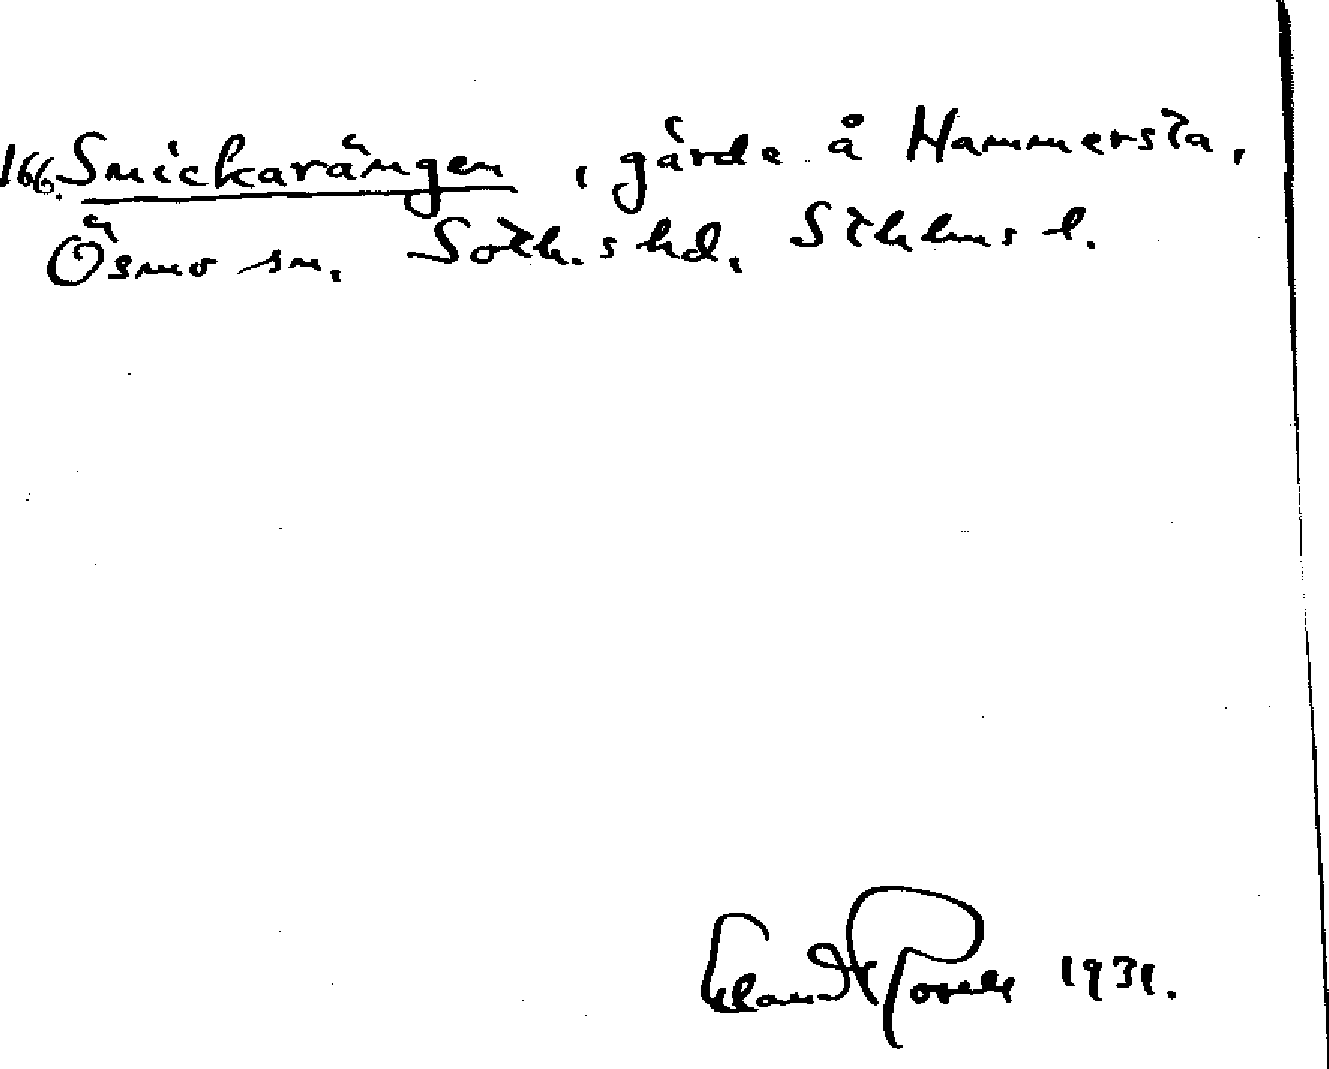 166. Snickarängen, gärde å Hammersta,
Ösmo sn. Soth.s hd. Sthlms l.
1931.